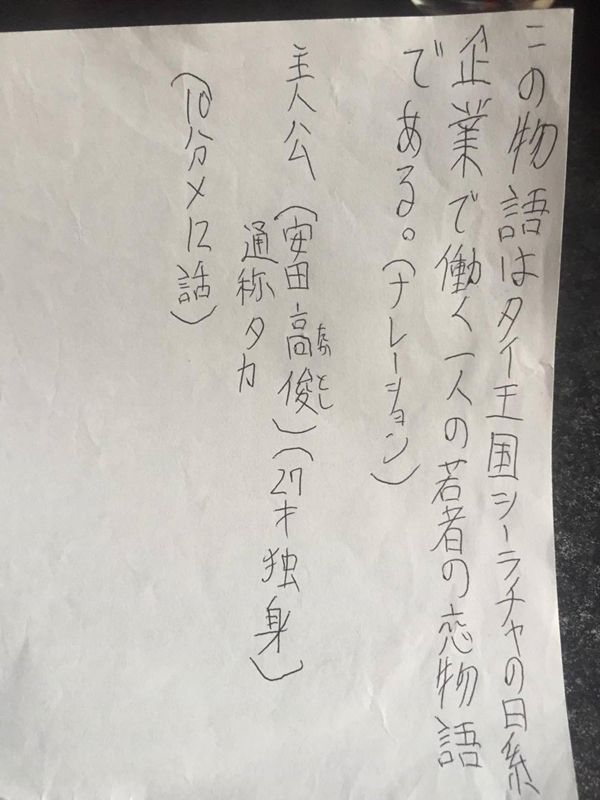 この物語はタイ王国シーラチャの日系
企業で働く一人の若者の恋物語
である。(ナレーション)
主人公(安田高俊)(27才独身)
たかとし
通称タカ
(10分×12話)